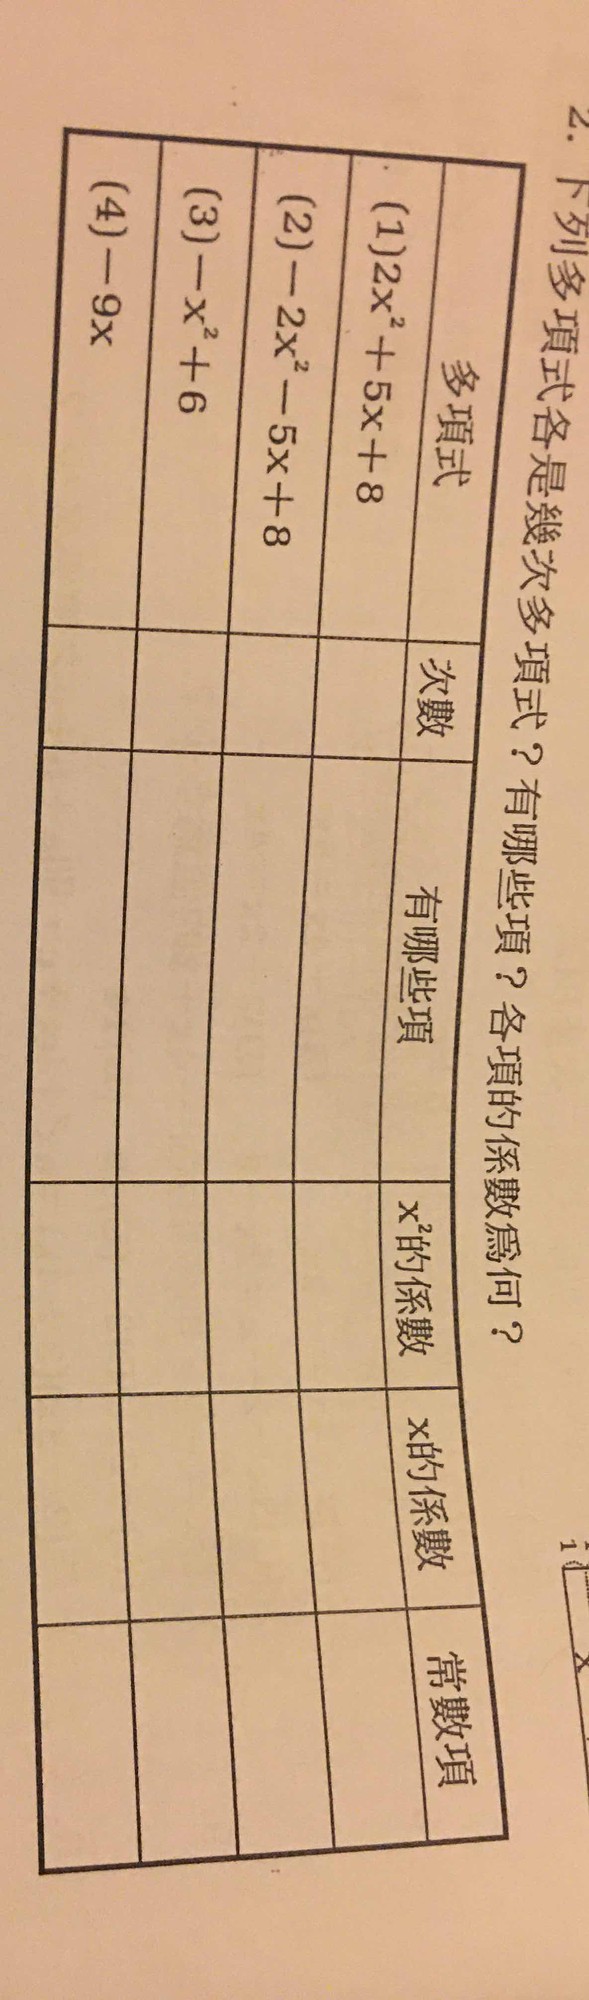 2. 下列多項式各是幾次多項式？有哪些項？各項的係數為何？
多項式 次數 有哪些項 x²的係數 x的係數 常數項
(1)2x²＋5x＋8
(2)－2x²－5x＋8
(3)－x²＋6
(4)－9x
1
x